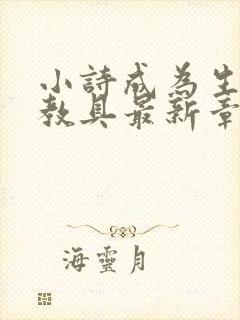 小詩成為生
教具最新章
海靈月